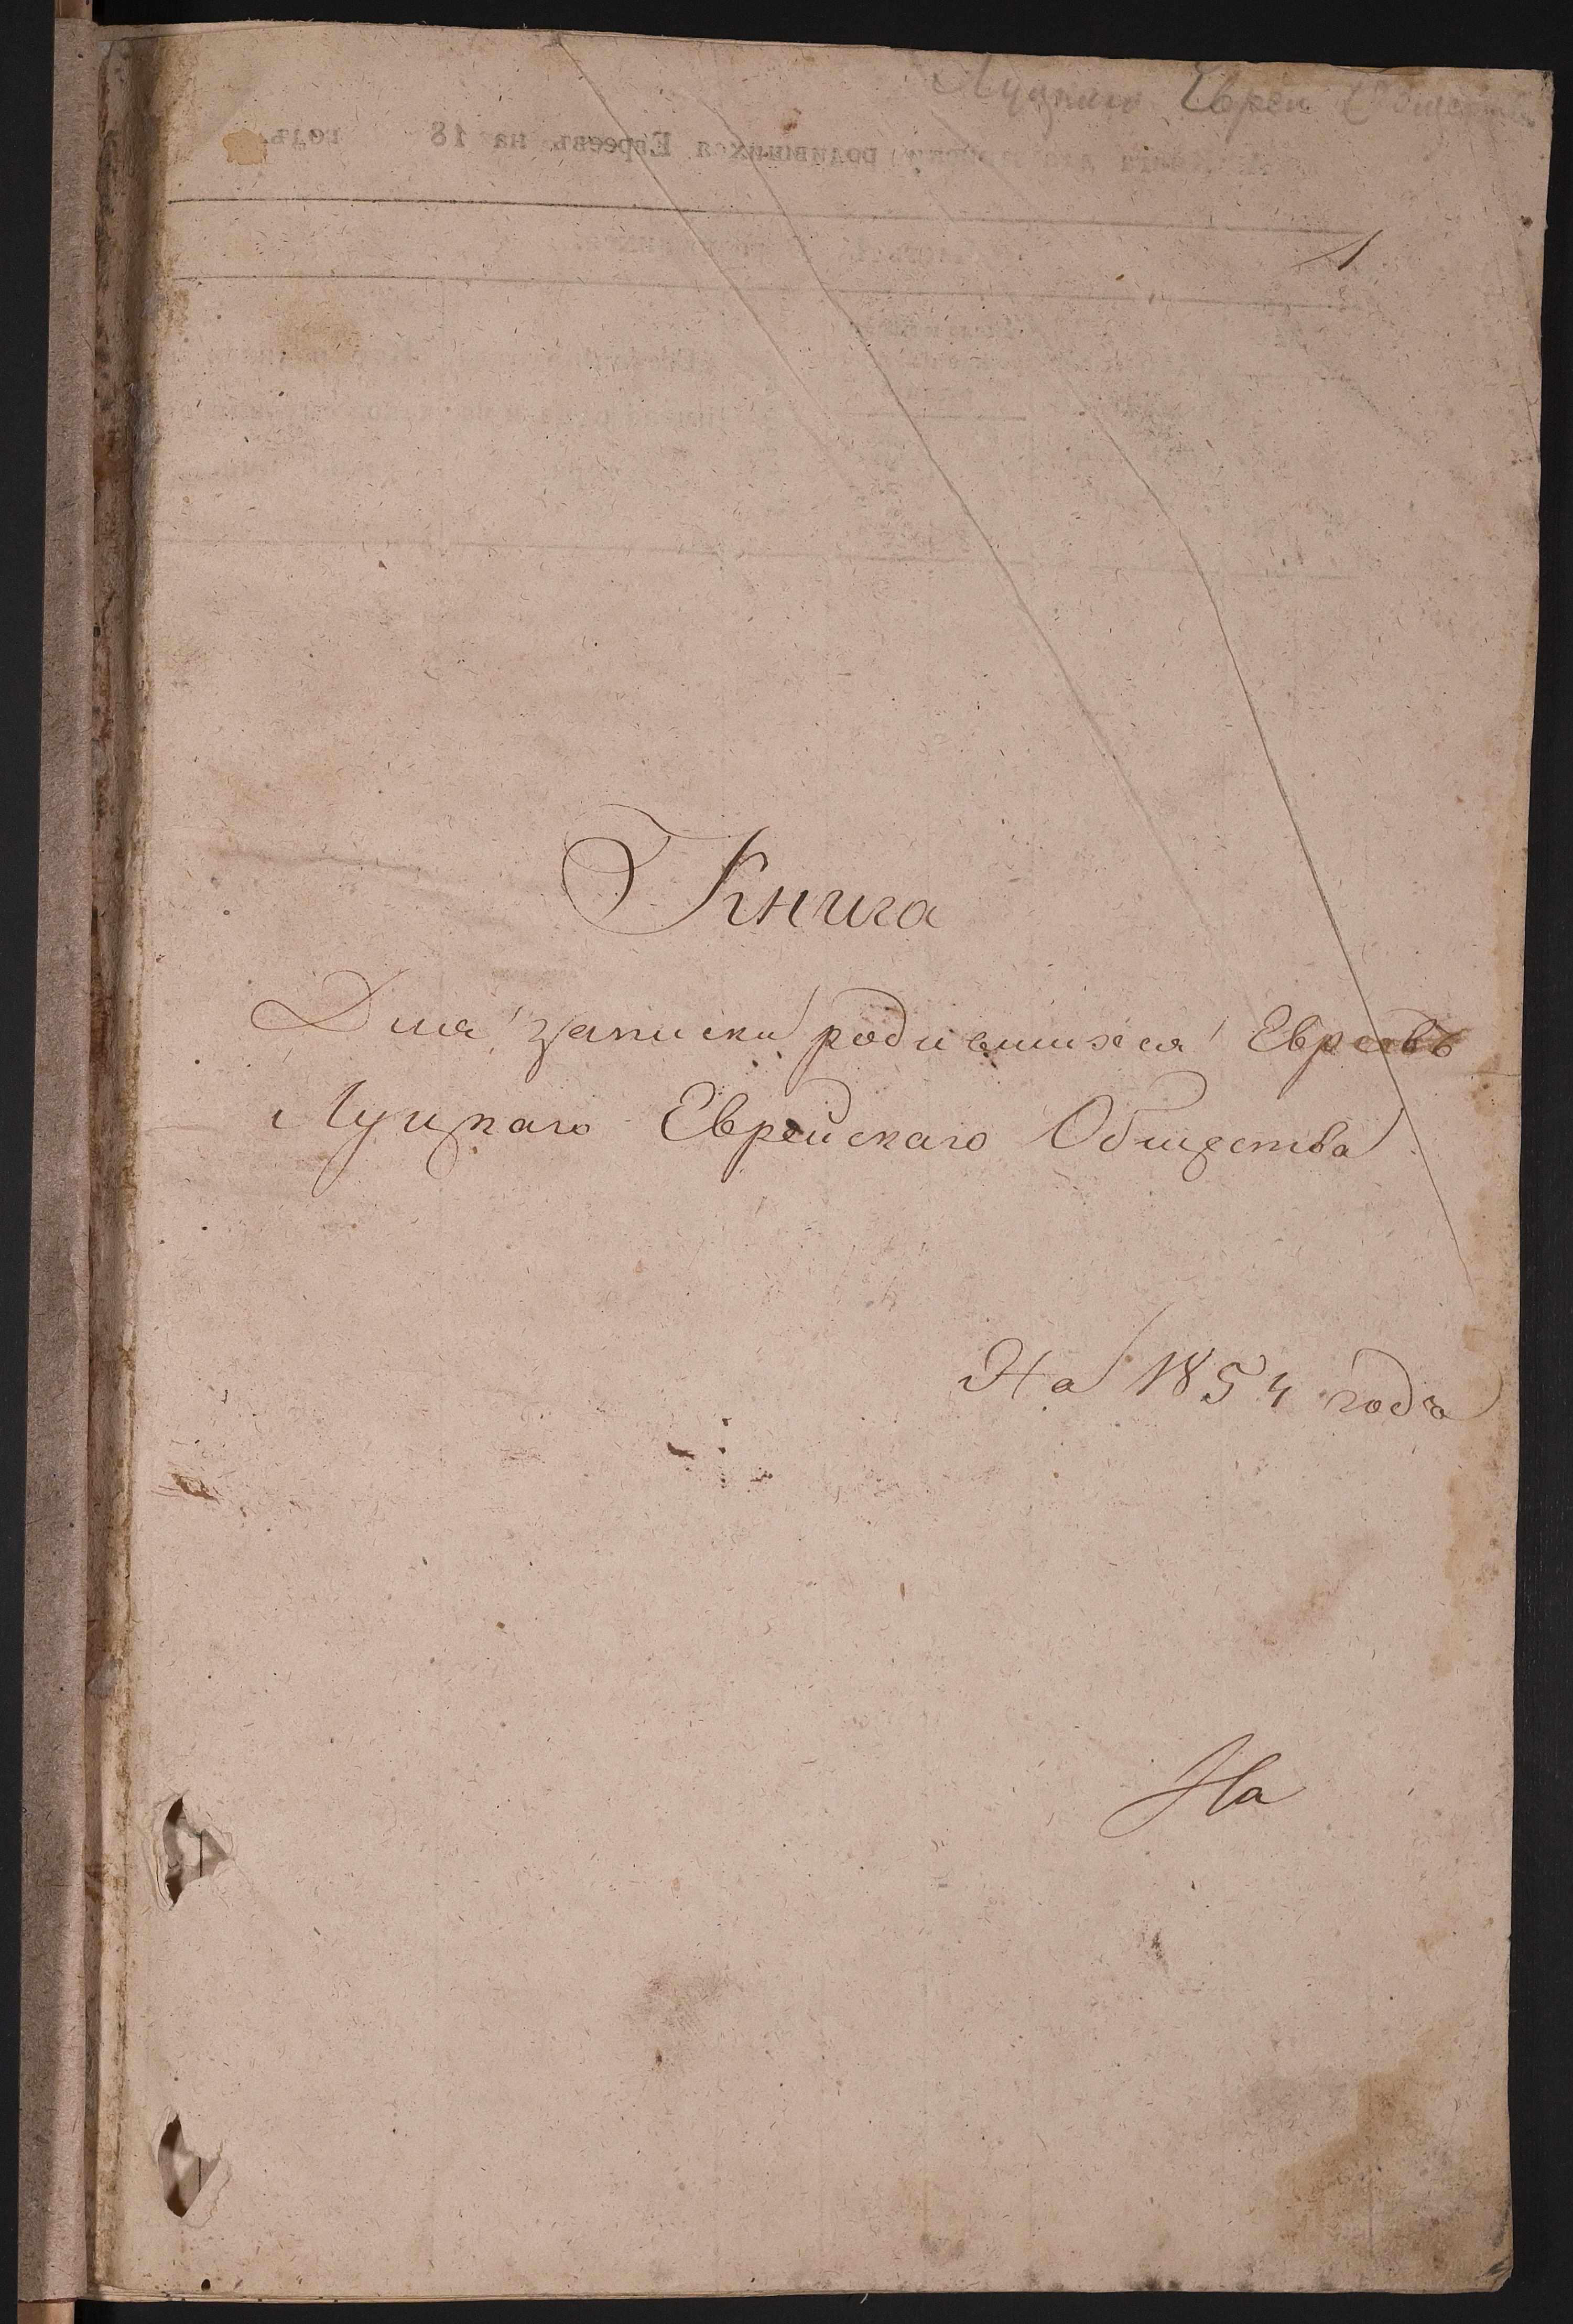 Луцкаго Евреи Общества
1
Книга
Для записки родившихся Евреевъ
Луцкаго Еврейскаго Общества
На 1854 годъ
На